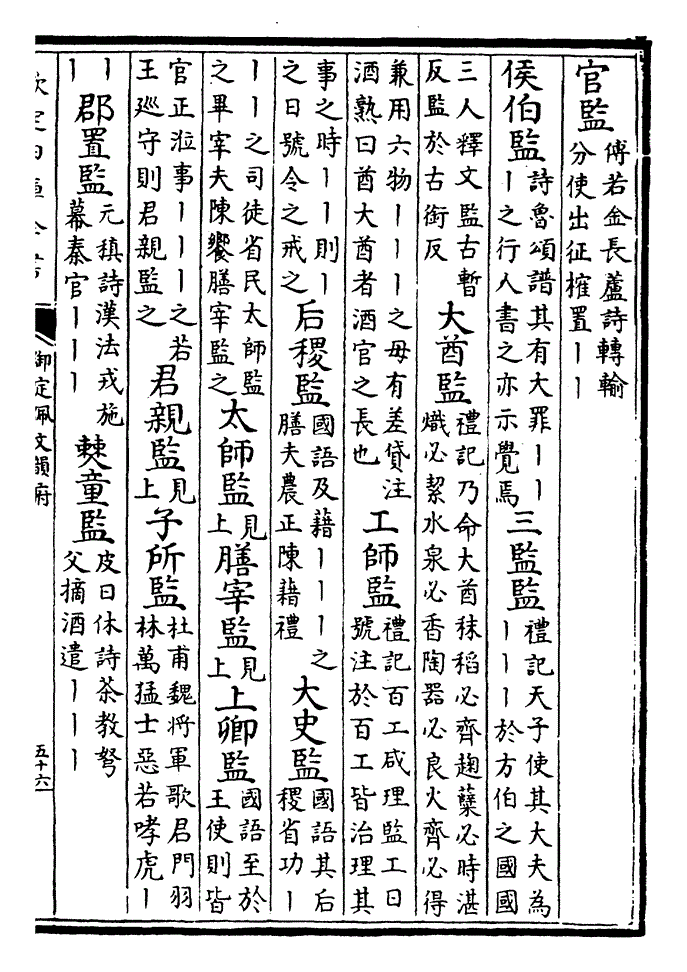 官監傅若金長蘆詩轉輸分使出征榷置丨丨
侯伯監詩魯頌譜其有大罪丨丨丨之行人書之亦示覺焉三監監禮記天子使其大夫為丨丨丨於方伯之國國
三人釋文監古暫反監於古銜反大酋監禮記乃命大酋秫稻必齊麴蘖必時湛熾必絜水泉必香陶器必良火齊必得
兼用六物丨丨丨之毋有差貸注酒熟曰酋大酋者酒官之長也工師監禮記百工咸理監工日號注於百工皆治理其
事之時丨丨則丨之日號令之戒之后稷監國語及藉丨丨丨之膳夫農正陳藉禮大史監國語其后稷省功丨
丨丨之司徒省民太師監之畢宰夫陳饗膳宰監之太師監見上膳宰監見上上卿監國語至於王使則皆
官正涖事丨丨丨之若王巡守則君親監之君親監見上子所監杜甫魏將軍歌君門羽林萬猛士惡若哮虎丨
丨丨郡置監元稹詩漢法戎施幕秦官丨丨丨棘童監皮日休詩茶教弩父摘酒遣丨丨丨
欽定四庫全書 御定佩文韻府 五十六